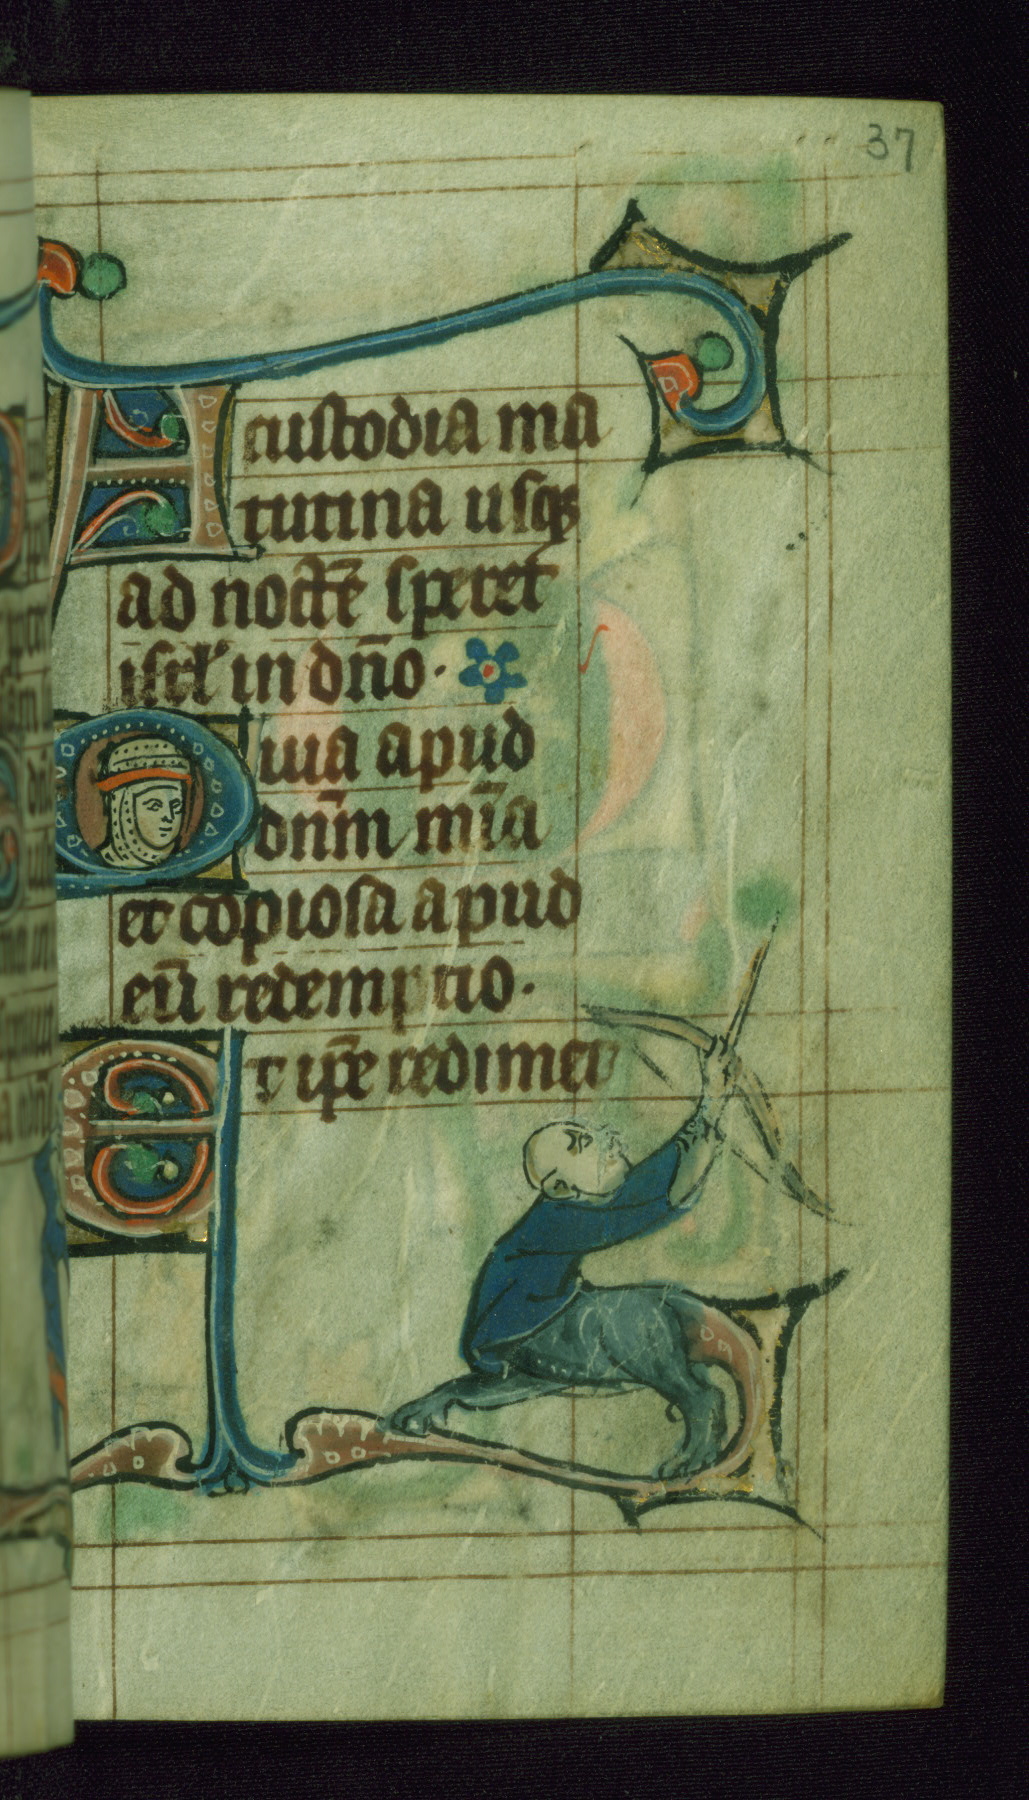 37
A custodia ma
tutina usqꝫ
ad noctē speret
isrl' in dn̄o·
Quia apud
dnm̄ mīa
et copiosa apud
eū redemptio·
Et ip̄e redimet